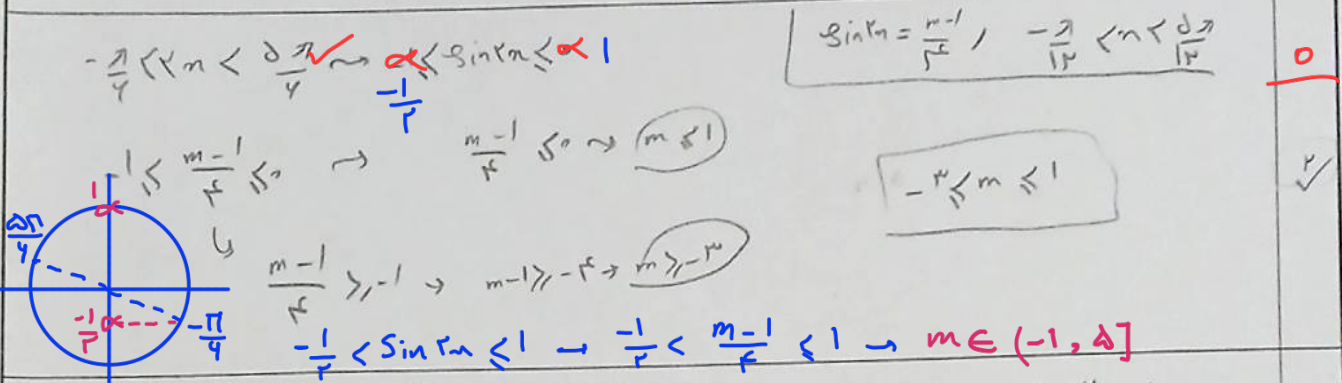 sin۲x = (m-1)/۴ , -π/۱۲ < x < ۵π/۱۲
۰
-π/۶ < ۲x < ۵π/۶ ✓ → ≤ sin۲x ≤ 1
-1/۲
-1 ≤ (m-1)/۴ ≤ ۰ → (m-1)/۴ ≤ ۰ → m ≤ 1
-۳ ≤ m ≤ 1
۲ ✓
(m-1)/۴ ≥ -1 → m-1 ≥ -۴ → m ≥ -۳
1
۵π/۶
-1/۲
-π/۶
-1/۲ < sin۲x ≤ 1 → -1/۲ < (m-1)/۴ ≤ 1 → m ∈ (-1, ۵]